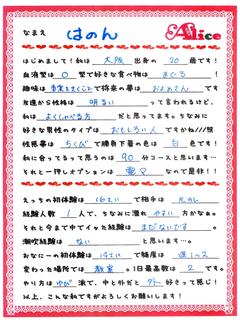 なまえ はのん
Alice
はじめまして！私は 大阪 出身の 20 歳です！
血液型は O 型で好きな食べ物は まぐろ ！
趣味は 音楽をきくこと で将来の夢は およめさん です
友達から性格は 明るい って言われるけど、
私は よくしゃべる方 だと思ってます。ちなみに
好きな男性のタイプは おもしろい人 ですかね///男
性感帯は ちくび で勝負下着の色は 白 色です！
私に会ってするって思うのは 90 分コースと思います…
それと一押しオプションは 電マ なので是非！！
経験人数 1 人で、ちなみに濡れ やすい 方かなぁ。
それと今まで中でイッた経験は まだないです 。
潮吹経験は ない と思います…。
変わった場所では 教室 。1日最高数は 2 です。
やり方は ゆび 派で、中と外だと 外 好きって感じ！
以上、こんな私ですがよろしくお願いします！